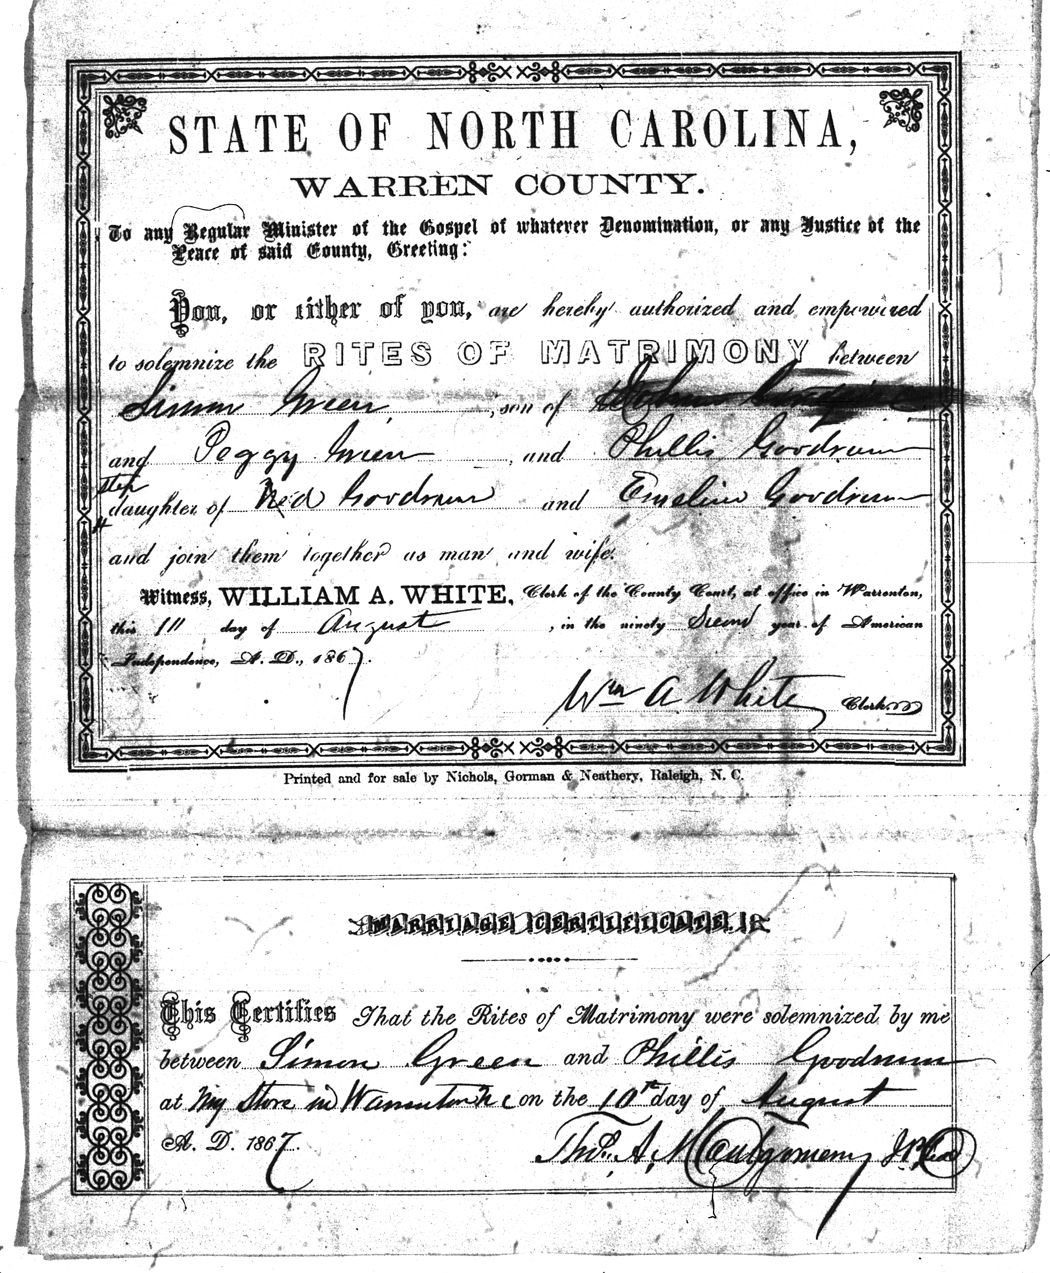 STATE OF NORTH CAROLINA,
WARREN COUNTY.
To any Regular Minister of the Gospel of whatever Denomination, or any Justice of the
Peace of said County, Greeting:
You, or either of you, are hereby authorized and empowered
to solemnize the RITES OF MATRIMONY between
Simon Green, son of
and Peggy Green, and Phillis Goodrum
step
daughter of Ned Goodrum and Emeline Goodrum
and join them together as man and wife.
Witness, WILLIAM A. WHITE, Clerk of the County Court, at office in Warrenton,
this 10 day of August, in the ninety Second year of American
Independence, A. D., 1867.
Wm A White Clerk.
Printed and for sale by Nichols, Gorman & Neathery, Raleigh, N. C.
MARRIAGE CERTIFICATE.
This Certifies That the Rites of Matrimony were solemnized by me
between Simon Green and Phillis Goodrum
at My Store in Warrenton N C on the 10th day of August
A. D. 1867.
Thos. A. Montgomery J.P.